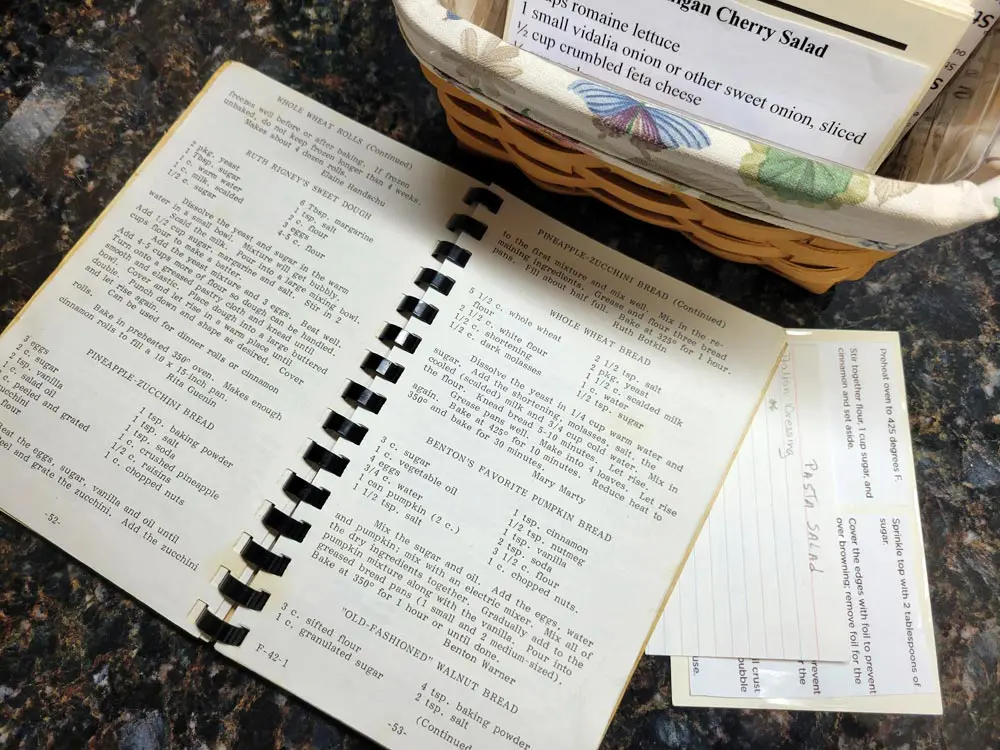 WHOLE WHEAT ROLLS (Continued)
freezes well before or after baking. If frozen
unbaked, do not keep frozen longer than 4 weeks.
Makes about 4 dozen rolls.
Elaine Handschu
RUTH RIGNEY'S SWEET DOUGH
2 pkg. yeast
1 Tbsp. sugar
1 c. warm water
1 c. milk, scalded
1/2 c. sugar
6 Tbsp. margarine
1 tsp. salt
2 c. flour
3 eggs
4-5 c. flour
Dissolve the yeast and sugar in the warm
water in a small bowl. Mixture will get bubbly.
Scald the milk. Pour into a large mixing bowl.
Add 1/2 cup sugar, margarine and salt. Stir in 2
cups flour to make a batter.
Add the yeast mixture and 3 eggs. Beat well.
Add 4-5 cups more of flour so dough can be handled.
Turn onto a greased pastry cloth and knead until
smooth and elastic. Place dough into a large buttered
bowl. Cover and let rise in a warm place until
double. Punch down and shape as desired. Cover
and let rise again.
Can be used for dinner rolls or cinnamon
rolls.
Bake in preheated 350° oven. Makes enough
cinnamon rolls to fill a 10 x 15 inch pan.
Rita Guenin
PINEAPPLE-ZUCCHINI BREAD
3 eggs
2 c. sugar
2 tsp. vanilla
1 c. salad oil
c. peeled and grated
zucchini
flour
1 tsp. baking powder
1 tsp. salt
1 tsp. soda
1 c. crushed pineapple
1/2 c. raisins
1 c. chopped nuts
Beat the eggs, sugar, vanilla and oil until
Peel and grate the zucchini. Add the zucchini
-52-
PINEAPPLE-ZUCCHINI BREAD (Continued)
to the first mixture and mix well. Mix in the re-
maining ingredients. Grease and flour three bread
pans. Fill about half full. Bake at 325° for 1 hour.
Ruth Botkin
WHOLE WHEAT BREAD
5 1/2 c. whole wheat
flour
2 1/2 c. white flour
1/2 c. shortening
1/2 c. dark molasses
2 1/2 tsp. salt
2 pkg. yeast
1 1/2 c. scalded milk
1 c. water
1/2 tsp. sugar
Dissolve the yeast in 1/4 cup warm water and
sugar. Add the shortening, molasses, salt, the
cooled (scalded) milk and 3/4 cup cold water. Mix in
the flour. Knead bread 5-10 minutes. Let rise.
Grease pans well. Make into 4 loaves. Let rise
again. Bake at 425° for 10 minutes. Reduce heat to
350° and bake for 30 minutes.
Mary Marty
BENTON'S FAVORITE PUMPKIN BREAD
3 c. sugar
1 c. vegetable oil
4 eggs
3/4 c. water
1 can pumpkin (2 c.)
1 1/2 tsp. salt
1 tsp. cinnamon
1/2 tsp. nutmeg
1 tsp. vanilla
2 tsp. soda
3 1/2 c. flour
1 c. chopped nuts.
Mix the sugar and oil. Add the eggs, water
and pumpkin; mix with an electric mixer. Mix all of
the dry ingredients together. Gradually add to the
pumpkin mixture along with the vanilla. Pour into
greased bread pans (1 small and 2 medium-sized).
Bake at 350° for 1 hour or until done.
Benton Warner
"OLD-FASHIONED" WALNUT BREAD
3 c. sifted flour
1 c. granulated sugar
4 tsp. baking powder
2 tsp. salt
(Continued
F-42-1
-53-
Cherry Salad
romaine lettuce
1 small vidalia onion or other sweet onion, sliced
½ cup crumbled feta cheese
Italian Dressing
PASTA SALAD
Preheat oven to 425 degrees F.
Stir together flour, 1 cup sugar, and
cinnamon and set aside.
Sprinkle top with 2 tablespoons of
sugar.
Cover the edges with foil to prevent
over browning; remove foil for the
prevent
the
crust
bubble
use.